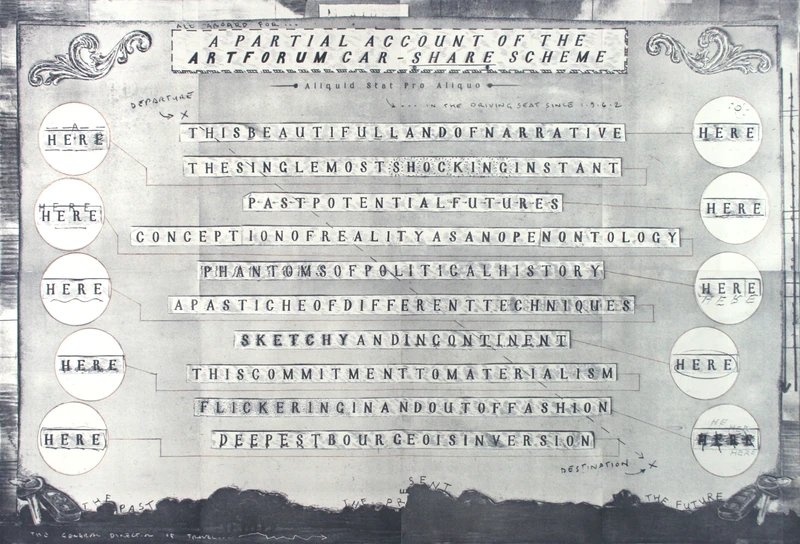 ALL ABOARD FOR ...
A PARTIAL ACCOUNT OF THE
ARTFORUM CAR-SHARE SCHEME
Aliquid Stat Pro Aliquo
DEPARTURE
X
... IN THE DRIVING SEAT SINCE
HERE
THISBEAUTIFULLANDOFNARRATIVE
HERE
THESINGLEMOSTSHOCKINGINSTANT
HERE
HERE
PASTPOTENTIALFUTURES
HERE
CONCEPTIONOFREALITYASANOPENONTOLOGY
HERE
PHANTOMSOFPOLITICALHISTORY
HERE
HERE
APASTICHEOFDIFFERENTTECHNIQUES
SKETCHYANDINCONTINENT
HERE
HERE
THISCOMMITMENTTOMATERIALISM
FLICKERINGINANDOUTOFFASHION
HERE
DEEPESTBOURGEOISINVERSION
HERE
HERE
DESTINATION X
THE PAST
THE PRESENT
THE FUTURE
THE GENERAL DIRECTION OF TRAVEL...